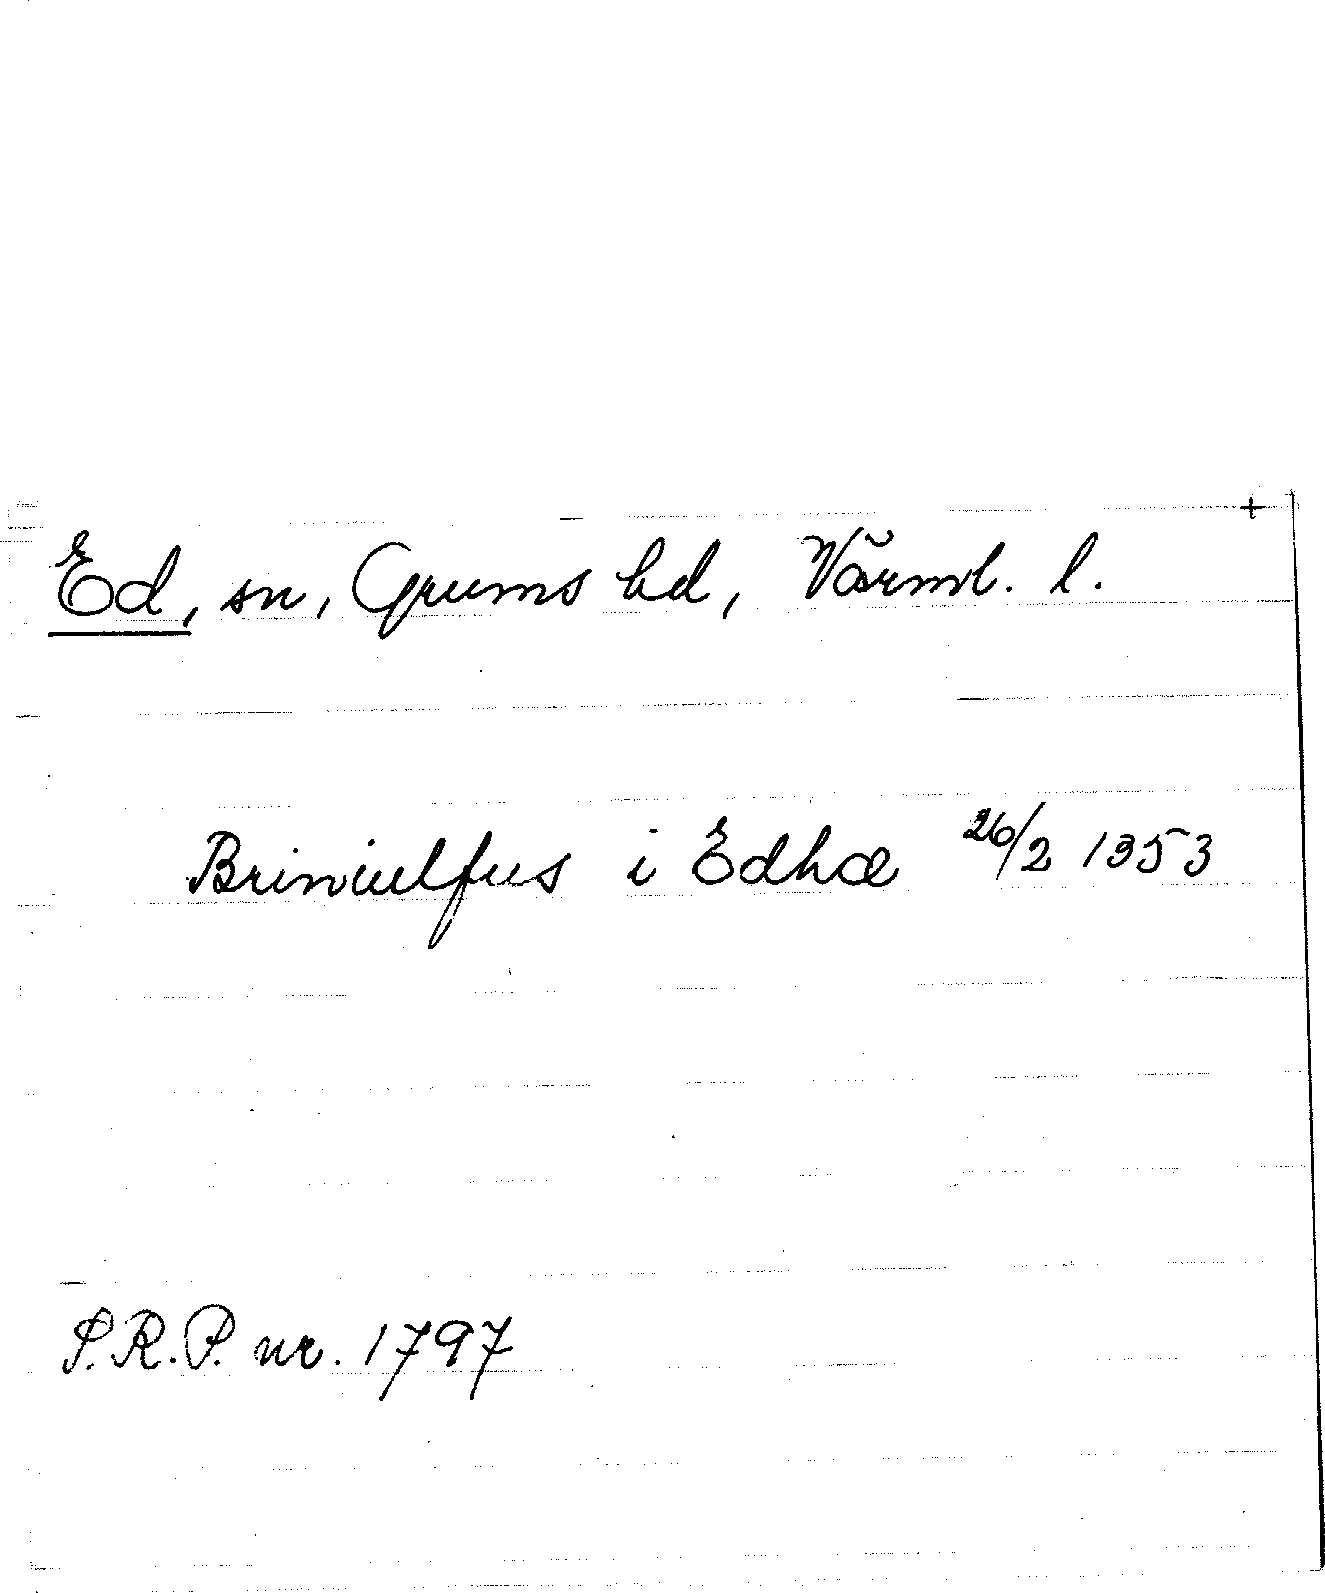 +
Ed, sn, Grums hd, Värml. l.
Briniulfus i Edhæ 26/2 1353
S.R.P. nr. 1797